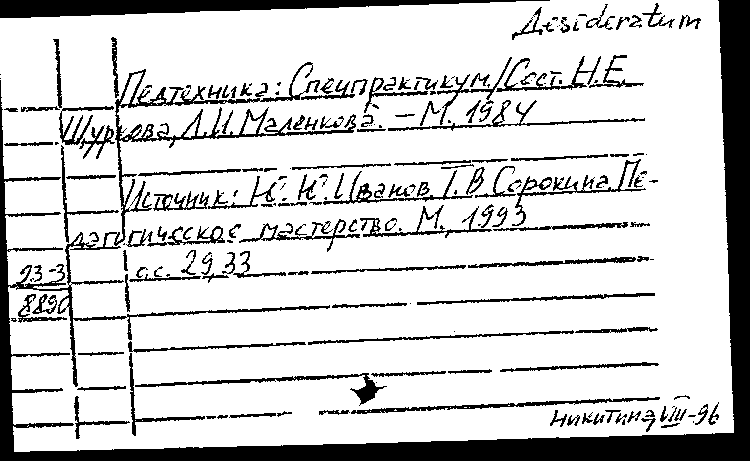 Desideratum
Педтехника: Спецпрактикум/Сост. Н.Е.
Щуркова, Л.И. Маленкова. – М., 1984
Источник: Ю. Ю. Иванов, Т.В Сорокина. Пе-
дагогическое мастерство. М., 1993
с.с. 29,33
93-3
8890
Никитина, VIII-96